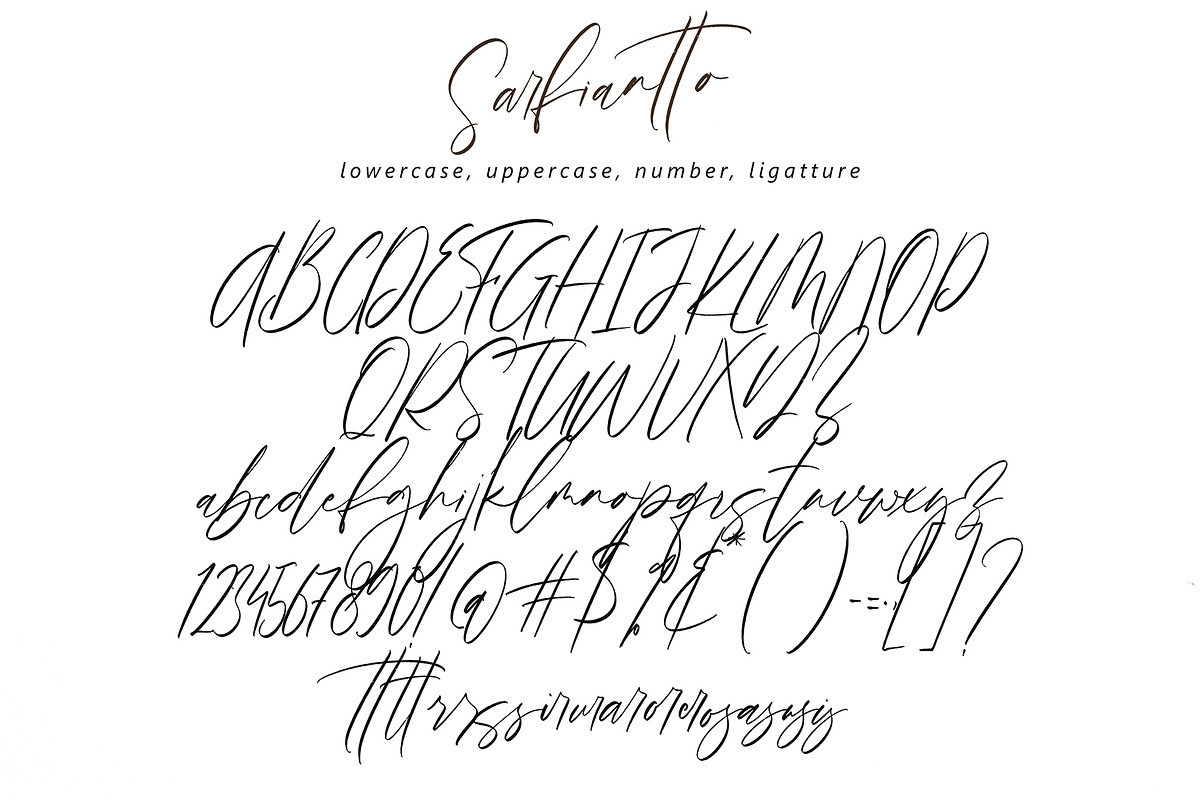 Sarfiantto
lowercase, uppercase, number, ligatture
ABCDEFGHIJKLMNOP
QRSTUVWXYZ
abcdefghijklmnopqrstuvwxyz
1234567890!@#$%&*()-=:;[]?